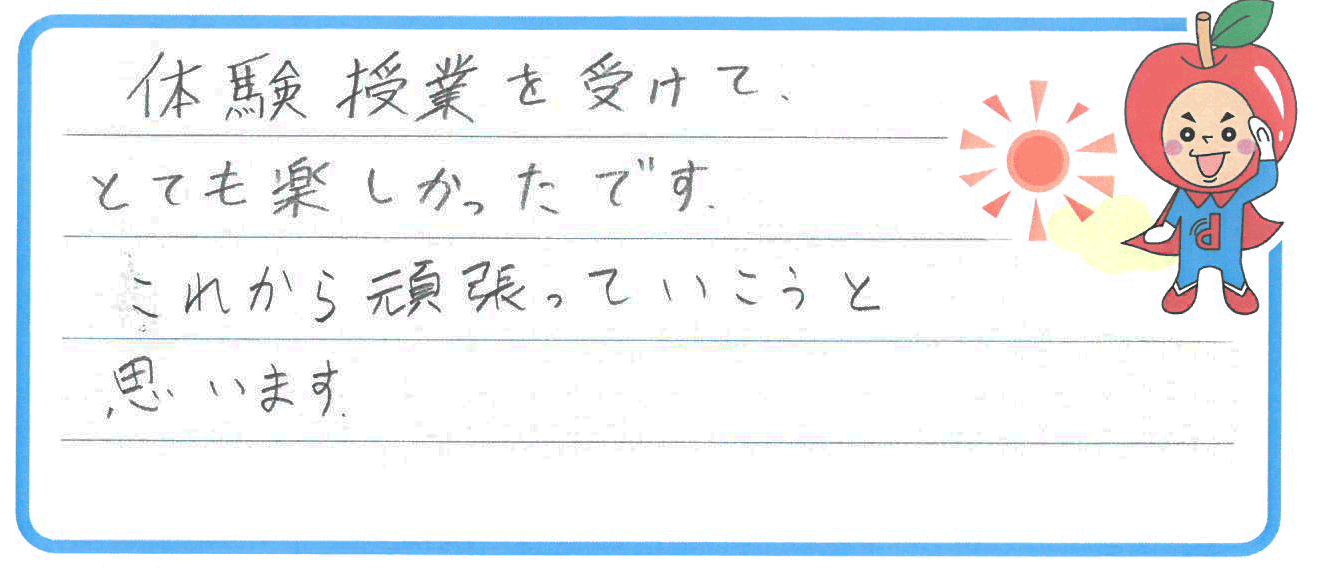 体験授業を受けて、
とても楽しかったです。
これから頑張っていこうと
思います。